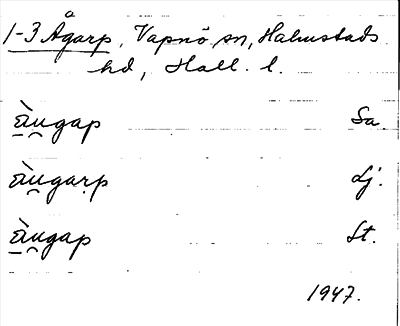 1-3 Ågarp, Vapnö sn, Halmstads
hd, Hall. l.
ὰu̯gap Sa
ὰu̯garp Lj.
ὰu̯gap St.
1947.